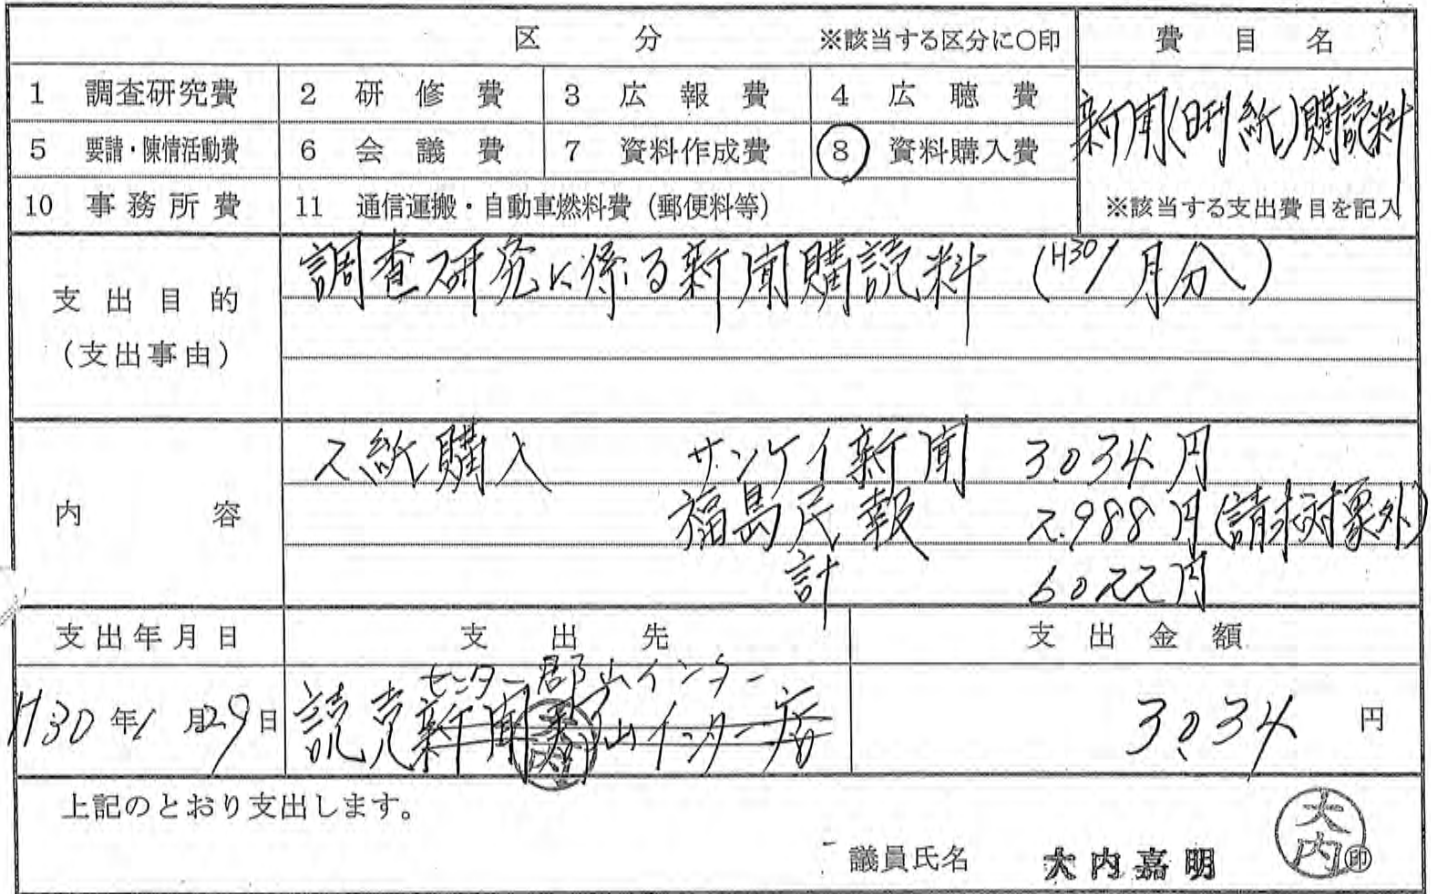 区 分 ※該当する区分に○印 費 目 名
1 調査研究費 2 研 修 費 3 広 報 費 4 広 聴 費
新聞(日刊紙)購読料
5 要請・陳情活動費 6 会 議 費 7 資料作成費 8 資料購入費
10 事 務 所 費 11 通信運搬・自動車燃料費(郵便料等) ※該当する支出費目を記入
支 出 目 的
(支出事由)
調査研究に係る新聞購読料 (H30/1月分)
内 容
2紙購入 サンケイ新聞 3.034円
福島民報 2.988円(請求対象外)
計 6022円
支出年月日 支 出 先 支 出 金 額
センター郡山インター
H30年1月29日 読売新聞郡山インター店 3.034 円
上記のとおり支出します。
議員氏名 大内嘉明 大内 印